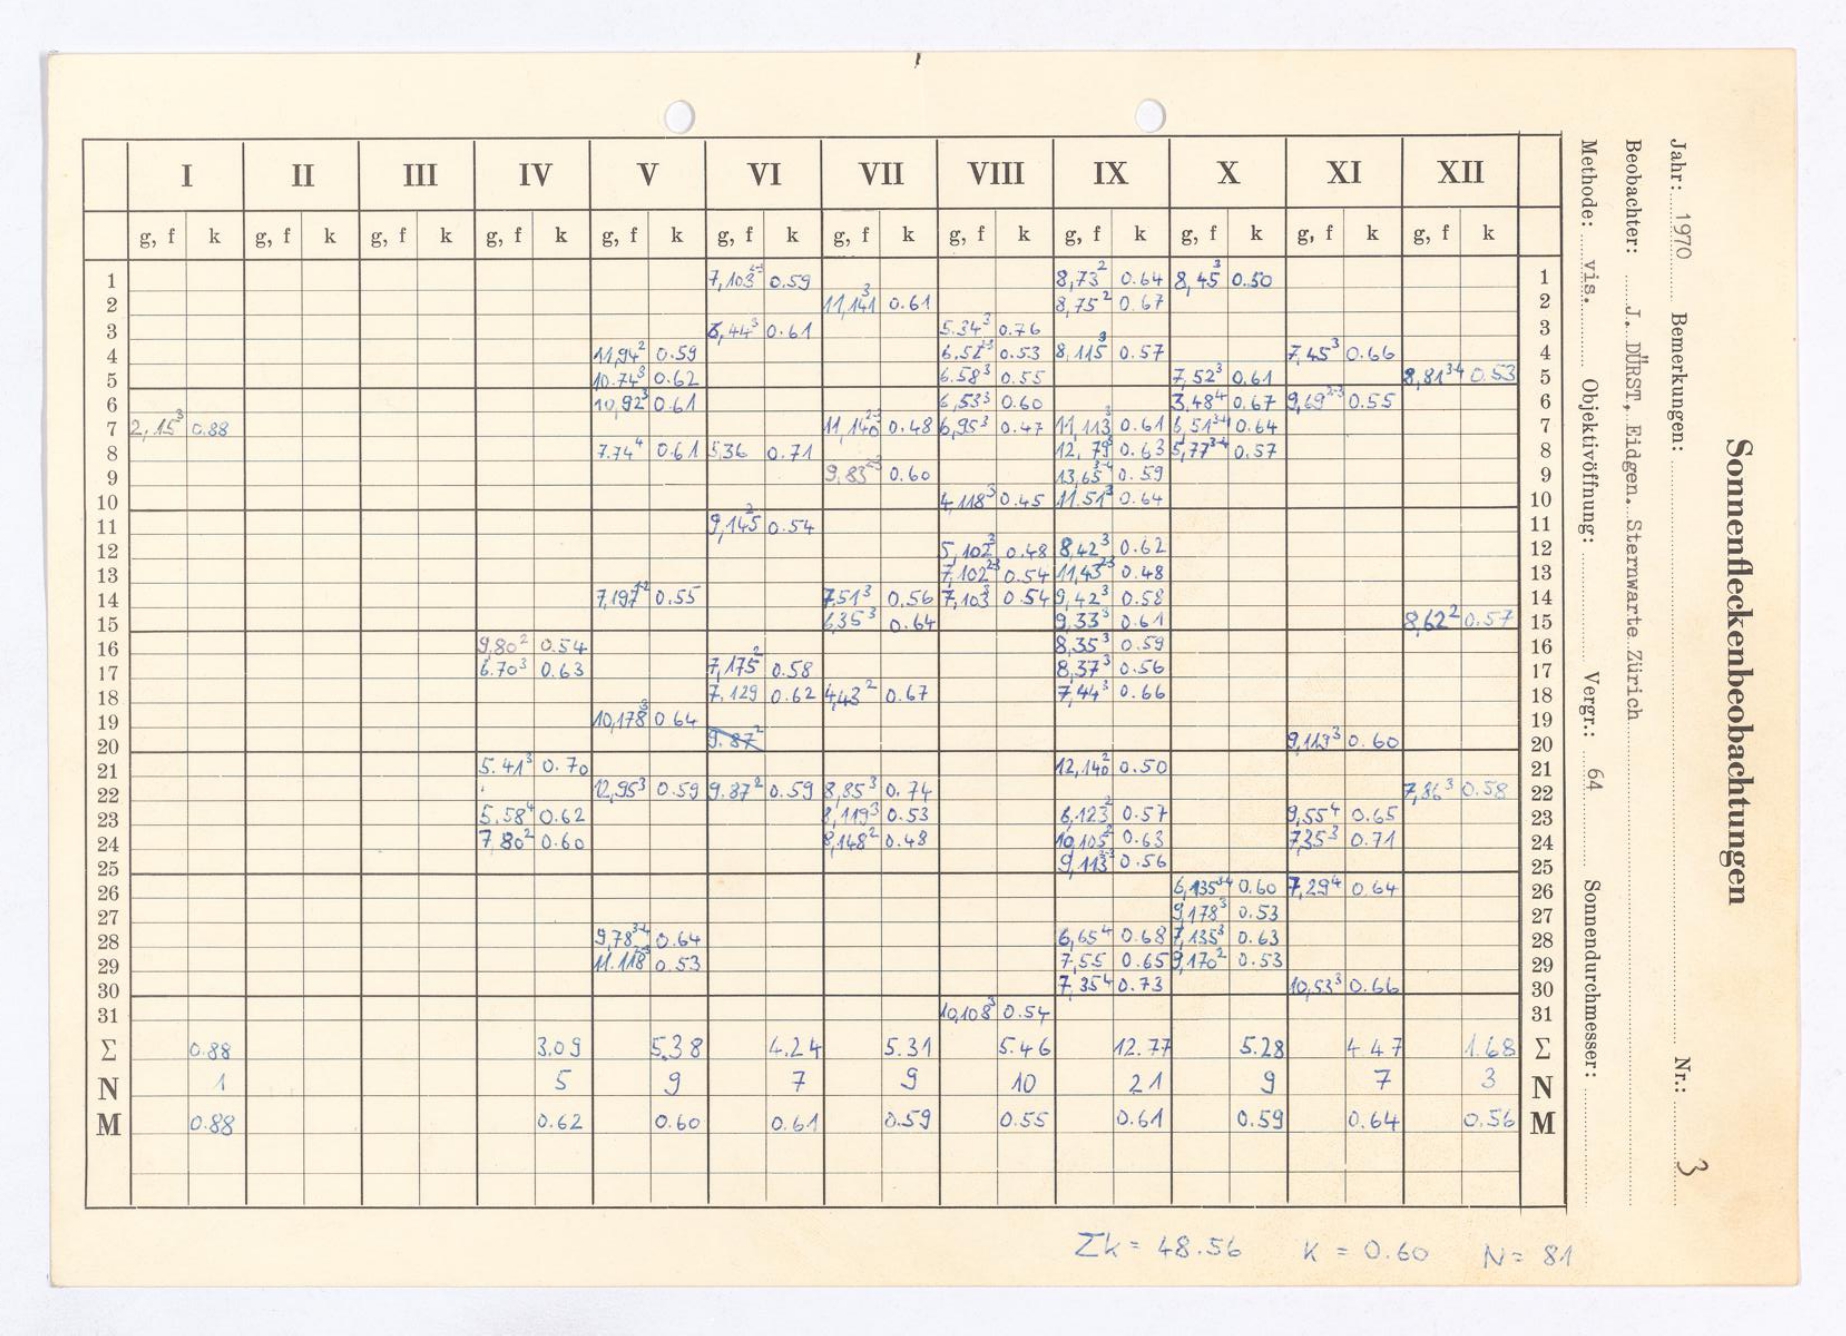 Sonnenfleckenbeobachtungen
Jahr: 1970 Bemerkungen: Nr.: 3
Beobachter: J. DÜRST, Eidgen. Sternwarte Zürich
Methode: vis. Objektivöffnung: Vergr.: 64 Sonnendurchmesser:
I II III IV V VI VII VIII IX X XI XII
g, f k g, f k g, f k g, f k g, f k g, f k g, f k g, f k g, f k g, f k g, f k g, f k
1 7,103²⁻³ 0.59 8,73² 0.64 8,45³ 0.50 1
2 11,141³ 0.61 8,75² 0.67 2
3 6,44³ 0.61 5.34³ 0.76 3
4 11,94² 0.59 6.52²⁻³ 0.53 8,115³ 0.57 7,45³ 0.66 4
5 10.74³ 0.62 6.58³ 0.55 7,52³ 0.61 8,81³⁻⁴ 0.53 5
6 10,92³ 0.61 6,53³ 0.60 3,48⁴ 0.67 9,69²⁻³ 0.55 6
7 2,15³ 0.88 11,140²⁻³ 0.48 6,95³ 0.47 11,113³ 0.61 6,51³⁻⁴ 0.64 7
8 7.74⁴ 0.61 5,36 0.71 12,79³ 0.63 5,77³⁻⁴ 0.57 8
9 9,83²⁻³ 0.60 13,65³⁻⁴ 0.59 9
10 4,118³ 0.45 11.51³ 0.64 10
11 9,145² 0.54 11
12 5,102³ 0.48 8,42³ 0.62 12
13 7,102²⁻³ 0.54 11,43²⁻³ 0.48 13
14 7,197¹⁻² 0.55 7,51³ 0.56 7,103³ 0.54 9,42³ 0.58 14
15 6,35³ 0.64 9,33³ 0.61 8,62² 0.57 15
16 9,80² 0.54 8,35³ 0.59 16
17 6.70³ 0.63 7,175² 0.58 8,37³ 0.56 17
18 7,129 0.62 4,43² 0.67 7,44³ 0.66 18
19 10,178³ 0.64 19
20 9.87² 9,119³ 0.60 20
21 5.41³ 0.70 12,140² 0.50 21
22 12,95³ 0.59 9.87² 0.59 8,85³ 0.74 7,86³ 0.58 22
23 5.58⁴ 0.62 8,119³ 0.53 6,123² 0.57 9,55⁴ 0.65 23
24 7,80² 0.60 8,148² 0.48 10,105² 0.63 7,35³ 0.71 24
25 9,113²⁻³ 0.56 25
26 6,135³⁻⁴ 0.60 7,29⁴ 0.64 26
27 9,178³ 0.53 27
28 9,78³⁻⁴ 0.64 6,65⁴ 0.68 7,135³ 0.63 28
29 11.118²⁻³ 0.53 7,55 0.65 9,170² 0.53 29
30 7,35⁴ 0.73 10,53³ 0.66 30
31 10,108³ 0.54 31
Σ 0.88 3.09 5.38 4.24 5.31 5.46 12.77 5.28 4.47 1.68 Σ
N 1 5 9 7 9 10 21 9 7 3 N
M 0.88 0.62 0.60 0.61 0.59 0.55 0.61 0.59 0.64 0.56 M
Σk = 48.56 K = 0.60 N = 81